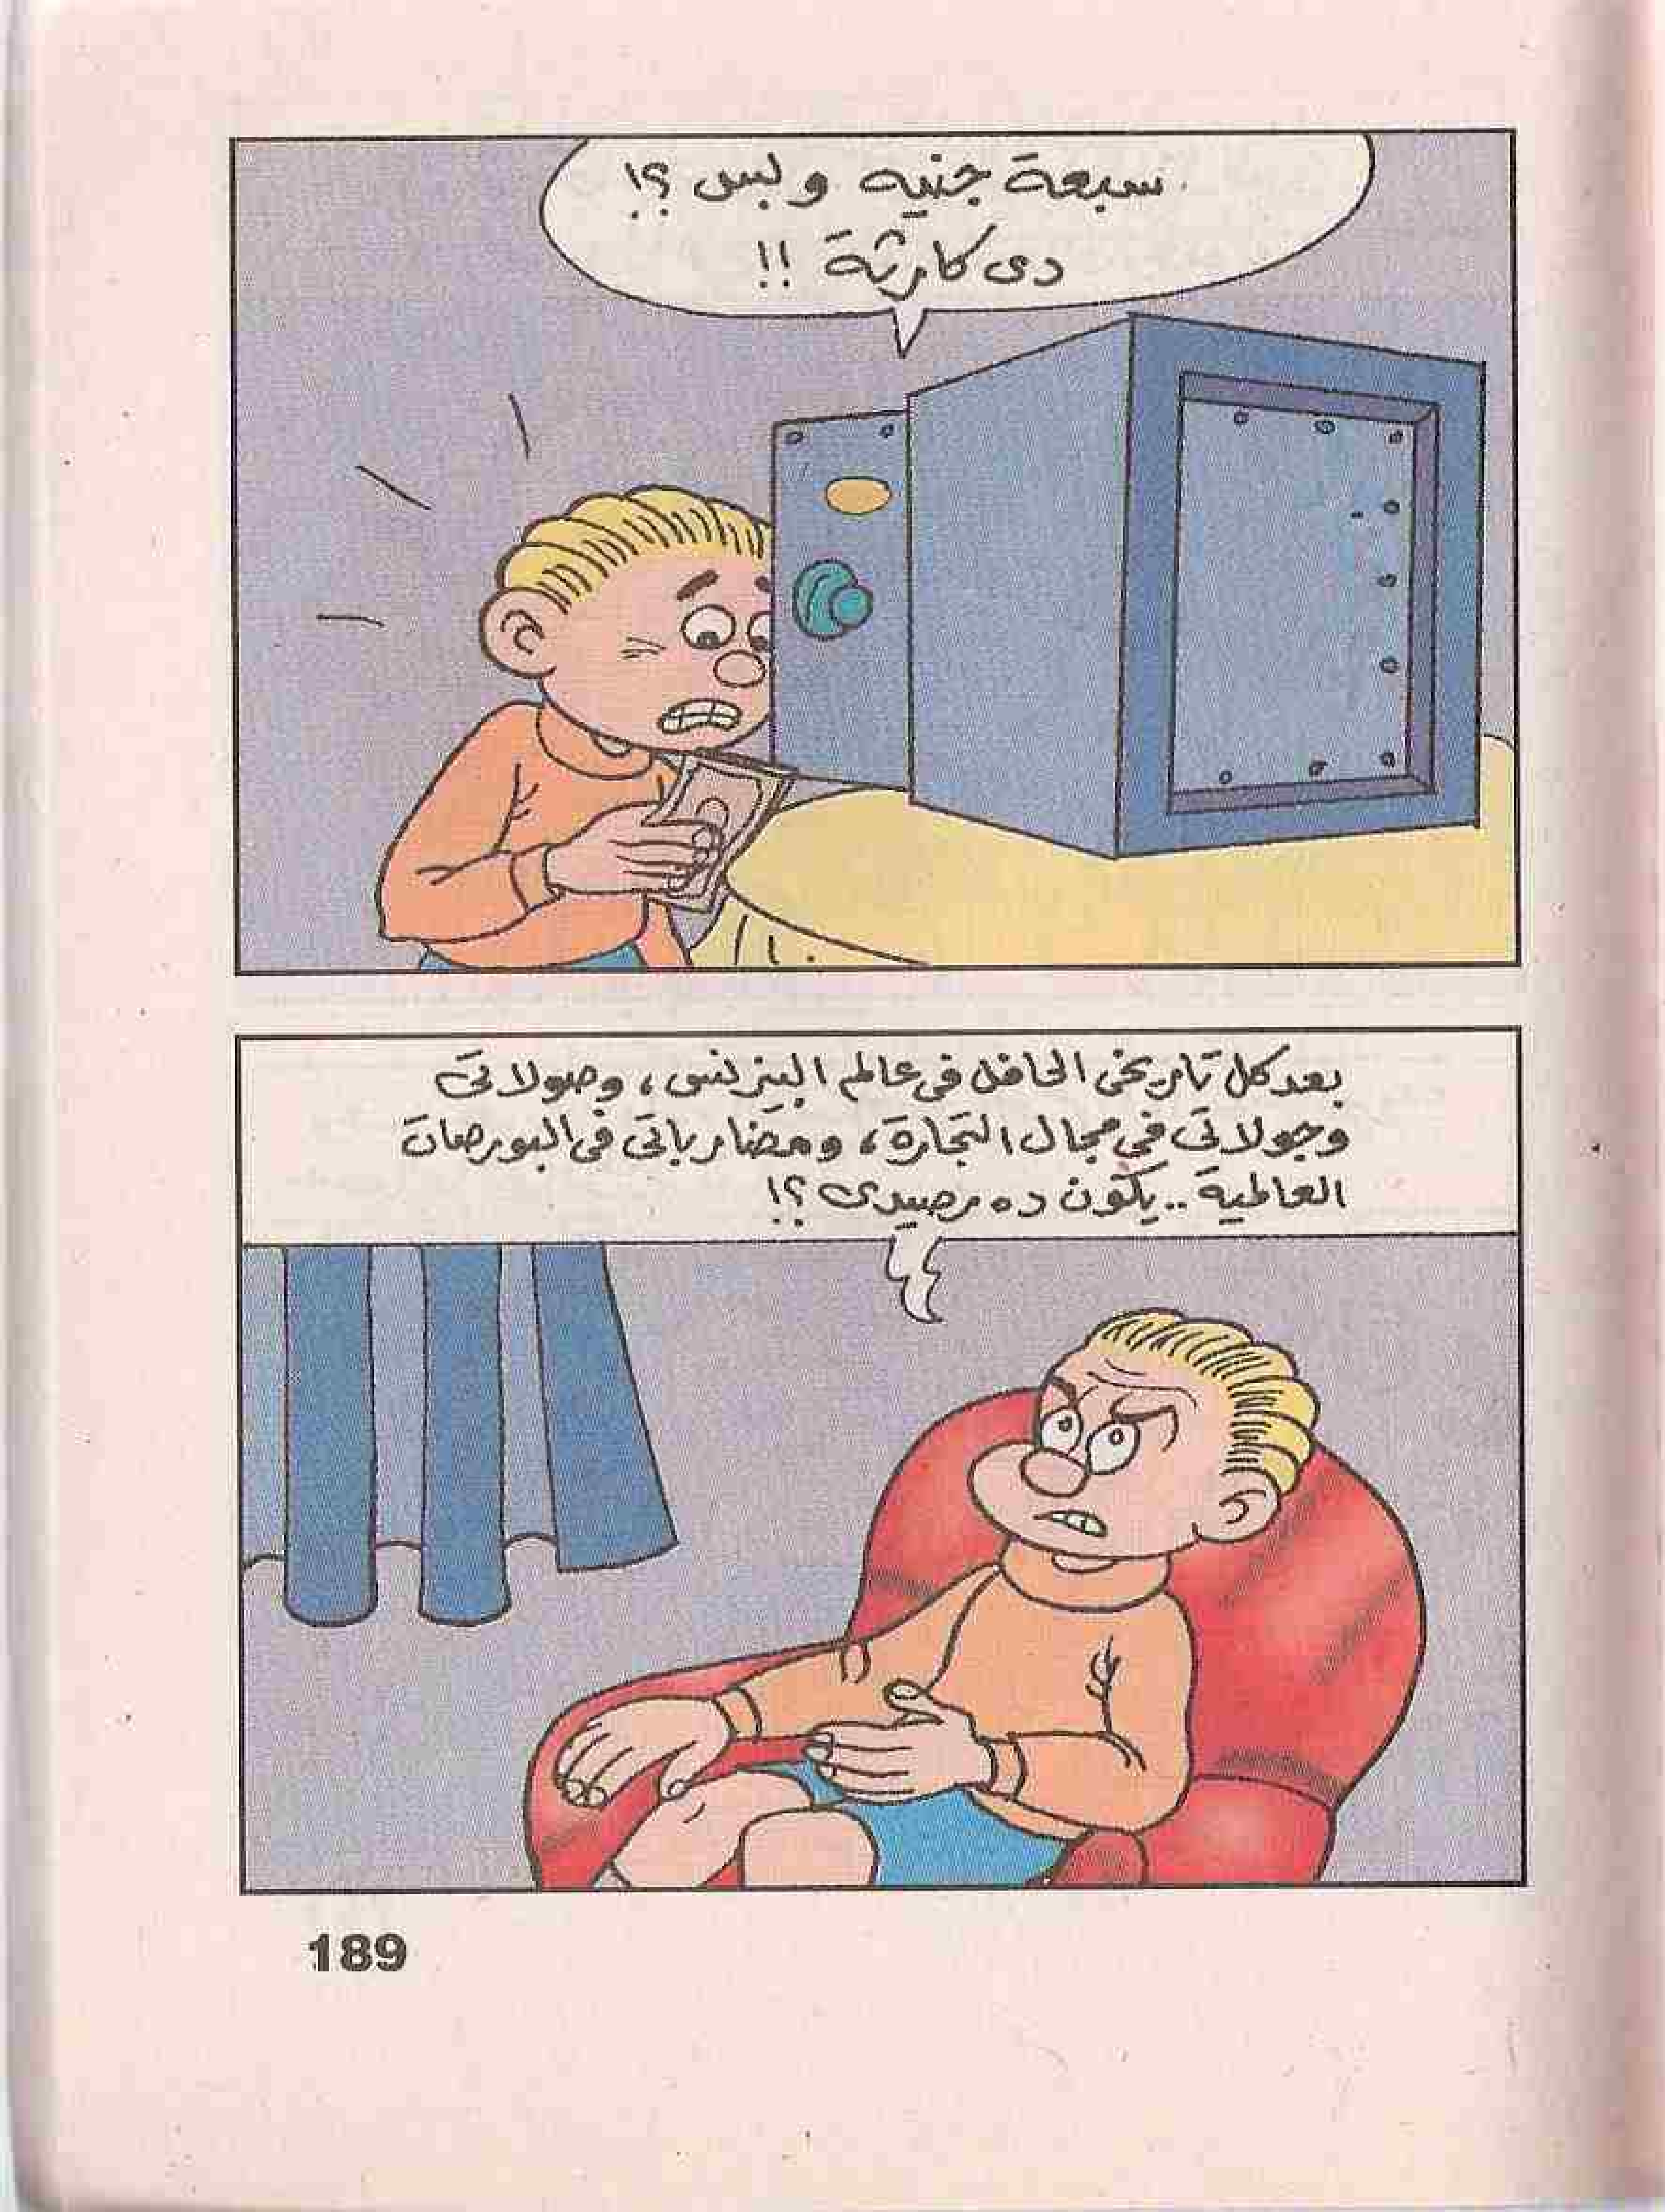 سبعة جنيه وبس ؟!
دى كارثة !!
بعد كل تاريخى الحافل فى عالم البيزنس ، وصولاتى
وجولاتى فى مجال التجارة ، ومضارباتى فى البورصات
العالمية .. يكون ده رصيدى ؟!
189